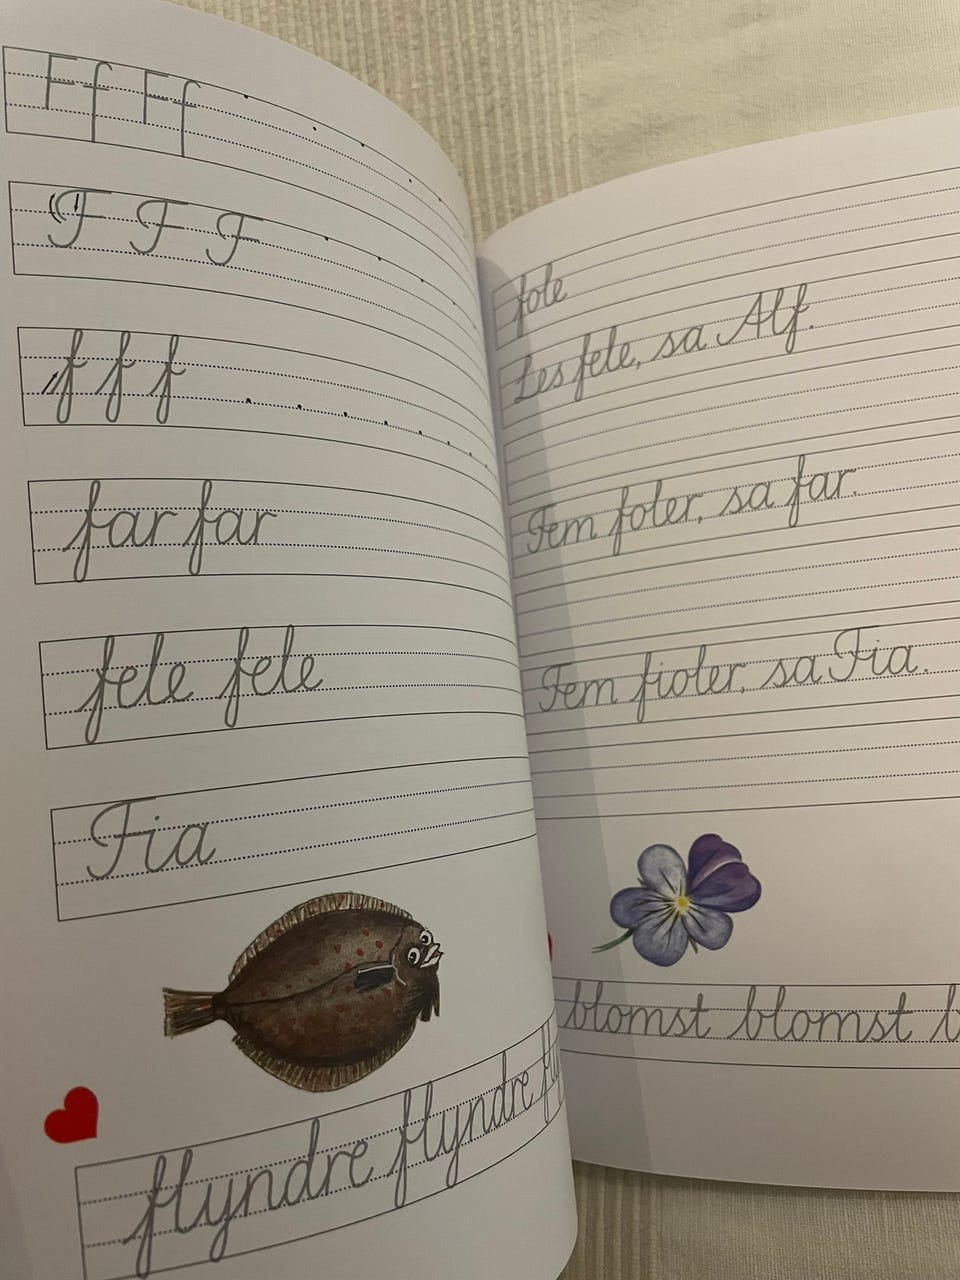 Ff Ff
F F F
f f f
far far
fele fele
Fia
flyndre flyndre
fole
Les fele, sa Alf.
Fem foler, sa far.
Fem fioler, sa Fia.
blomst blomst